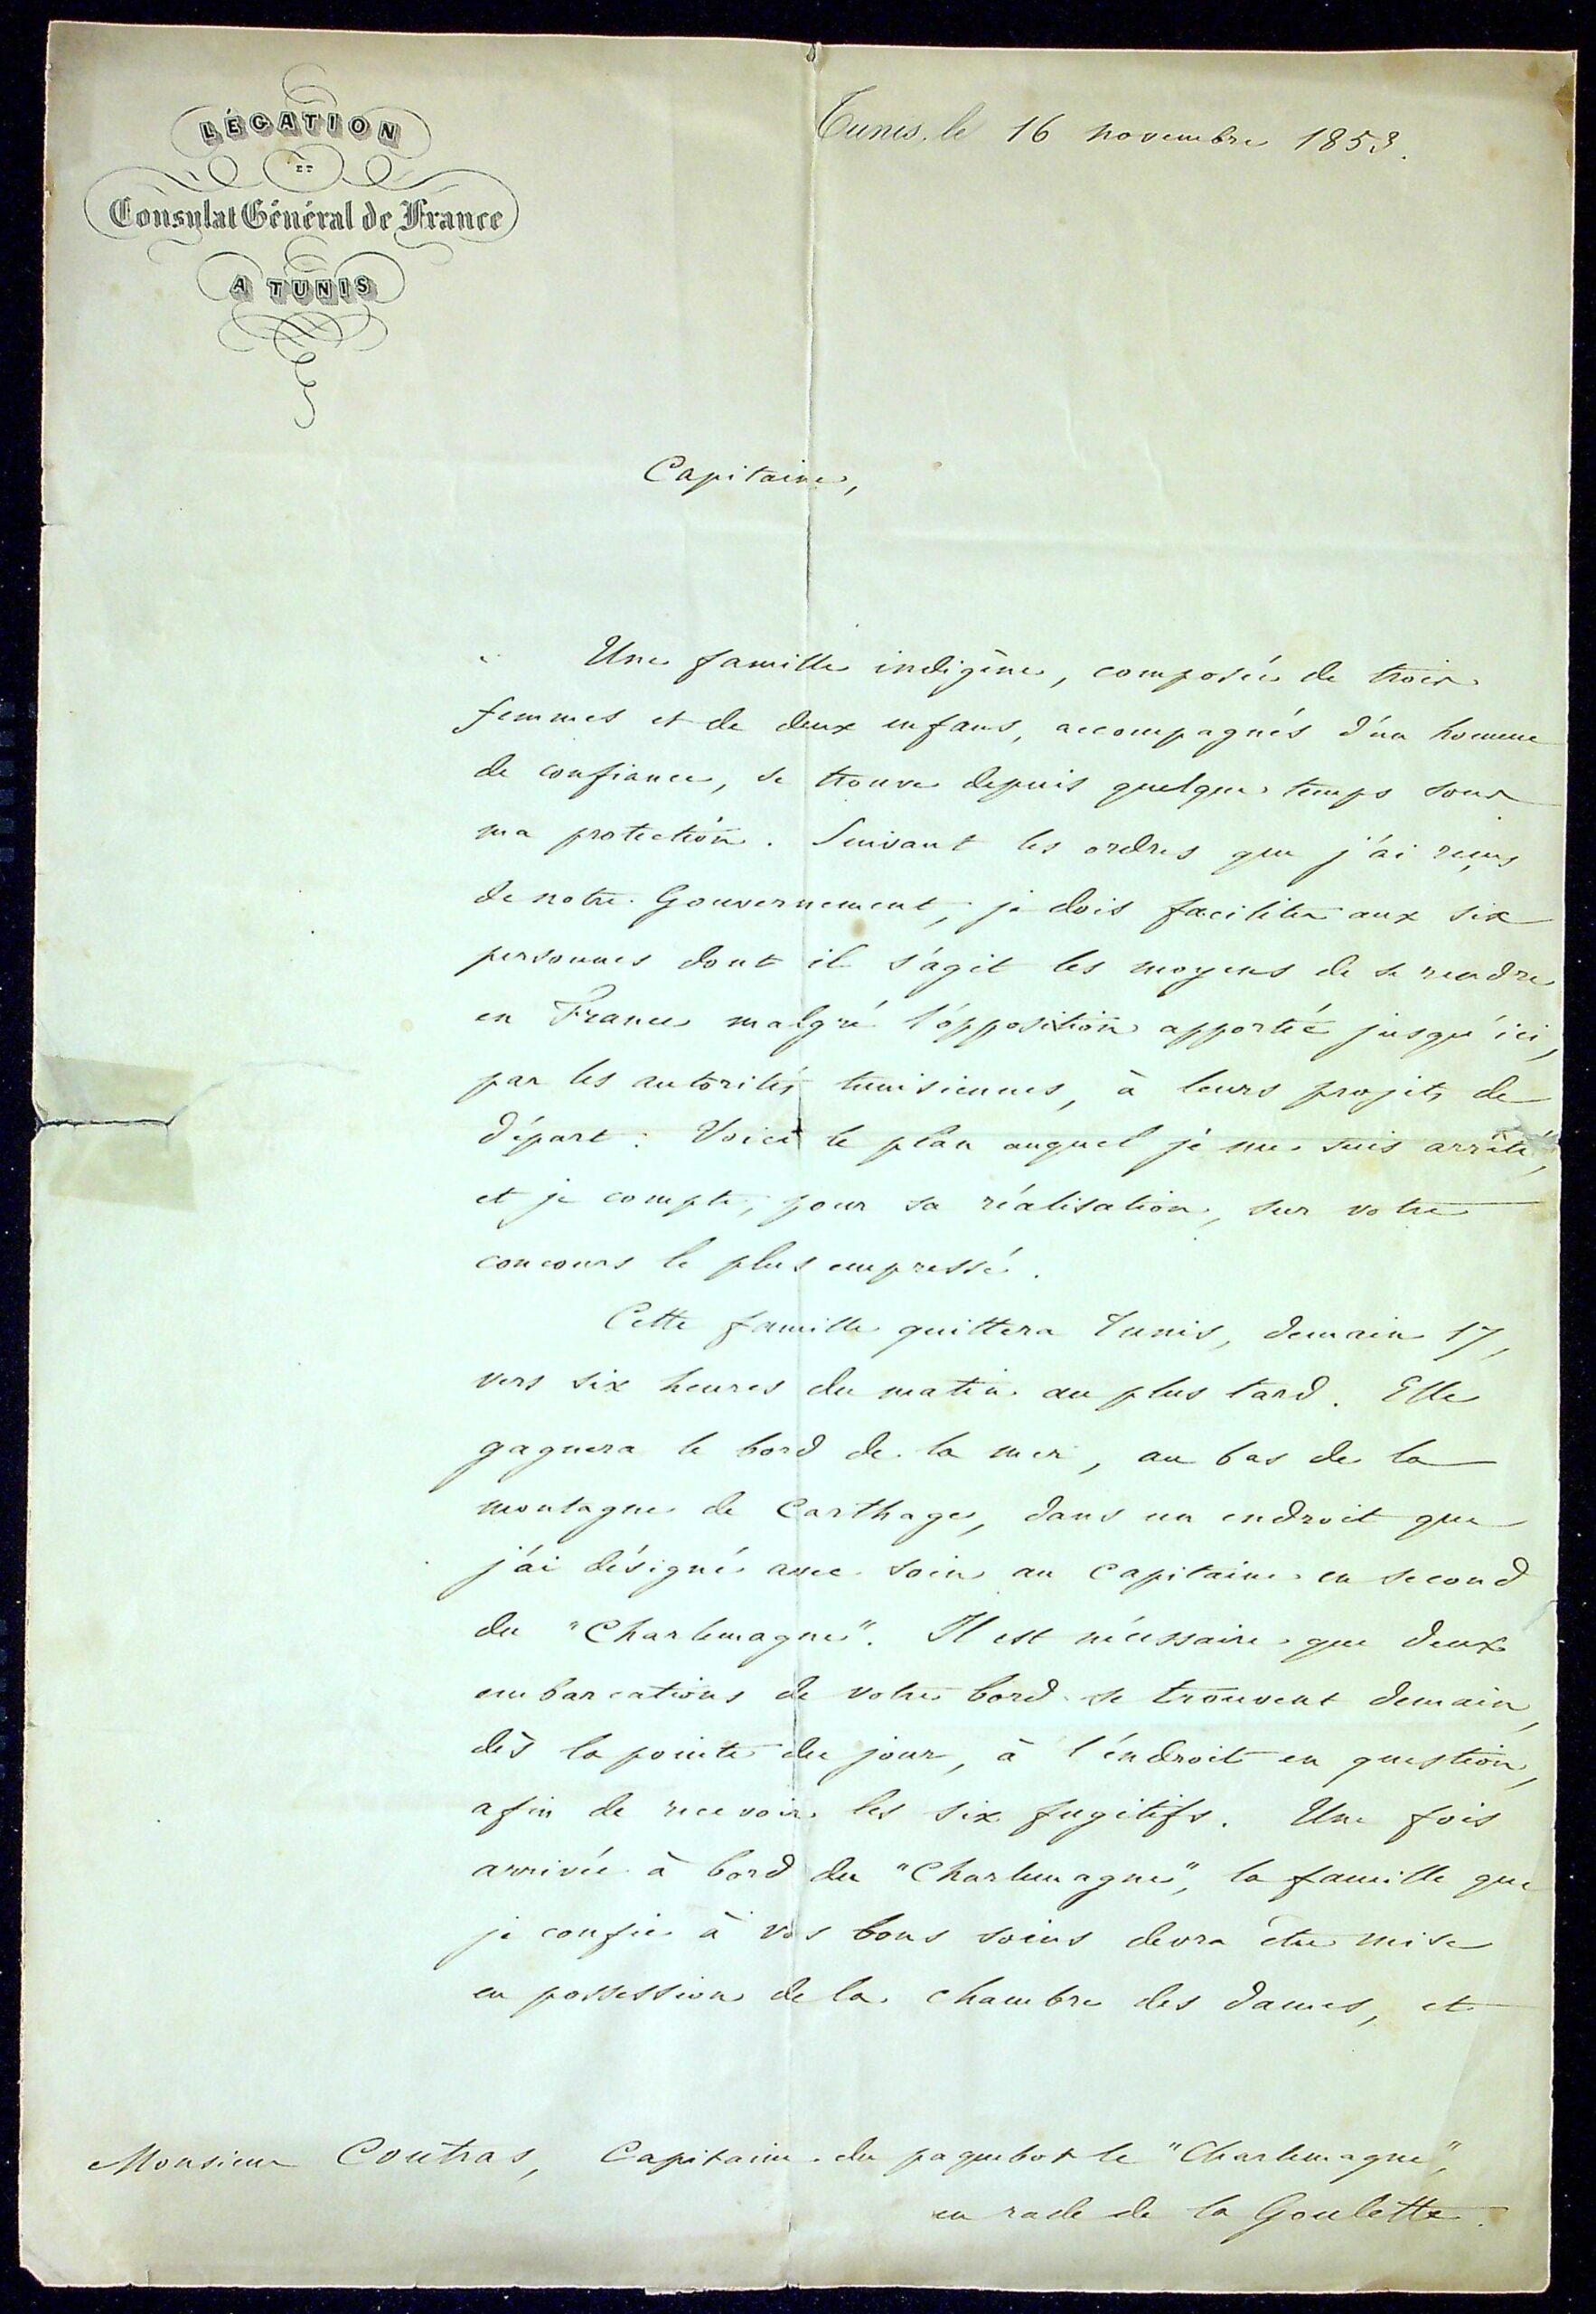 LÉGATION
ET
Consulat Général de France
A TUNIS
Tunis, le 16 novembre 1853.
Capitaine,
Une famille indigène, composée de trois
femmes et de deux enfans, accompagnés d'un homme
de confiance, se trouve depuis quelque temps sous
ma protection. Suivant les ordres que j'ai reçus
de notre Gouvernement, je dois faciliter aux six
personnes dont il s'agit les moyens de se rendre
en France malgré l'opposition apportée jusqu'ici,
par les autorités tunisiennes, à leurs projets de
départ. Voici le plan auquel je me suis arrêté,
et je compte, pour sa réalisation, sur votre
concours le plus empressé.
Cette famille quittera Tunis, demain 17,
vers six heures du matin au plus tard. Elle
gagnera le bord de la mer, au bas de la
montagne de Carthage, dans un endroit que
j'ai désigné avec soin au Capitaine en second
du "Charlemagne". Il est nécessaire que deux
embarcations de votre bord se trouvent demain,
dès la pointe du jour, à l'endroit en question,
afin de recevoir les six fugitifs. Une fois
arrivée à bord du "Charlemagne", la famille que
je confie à vos bons soins devra être mise
en possession de la chambre des dames, et
Monsieur Coutras, Capitaine du paquebot le "Charlemagne",
en rade de la Goulette.